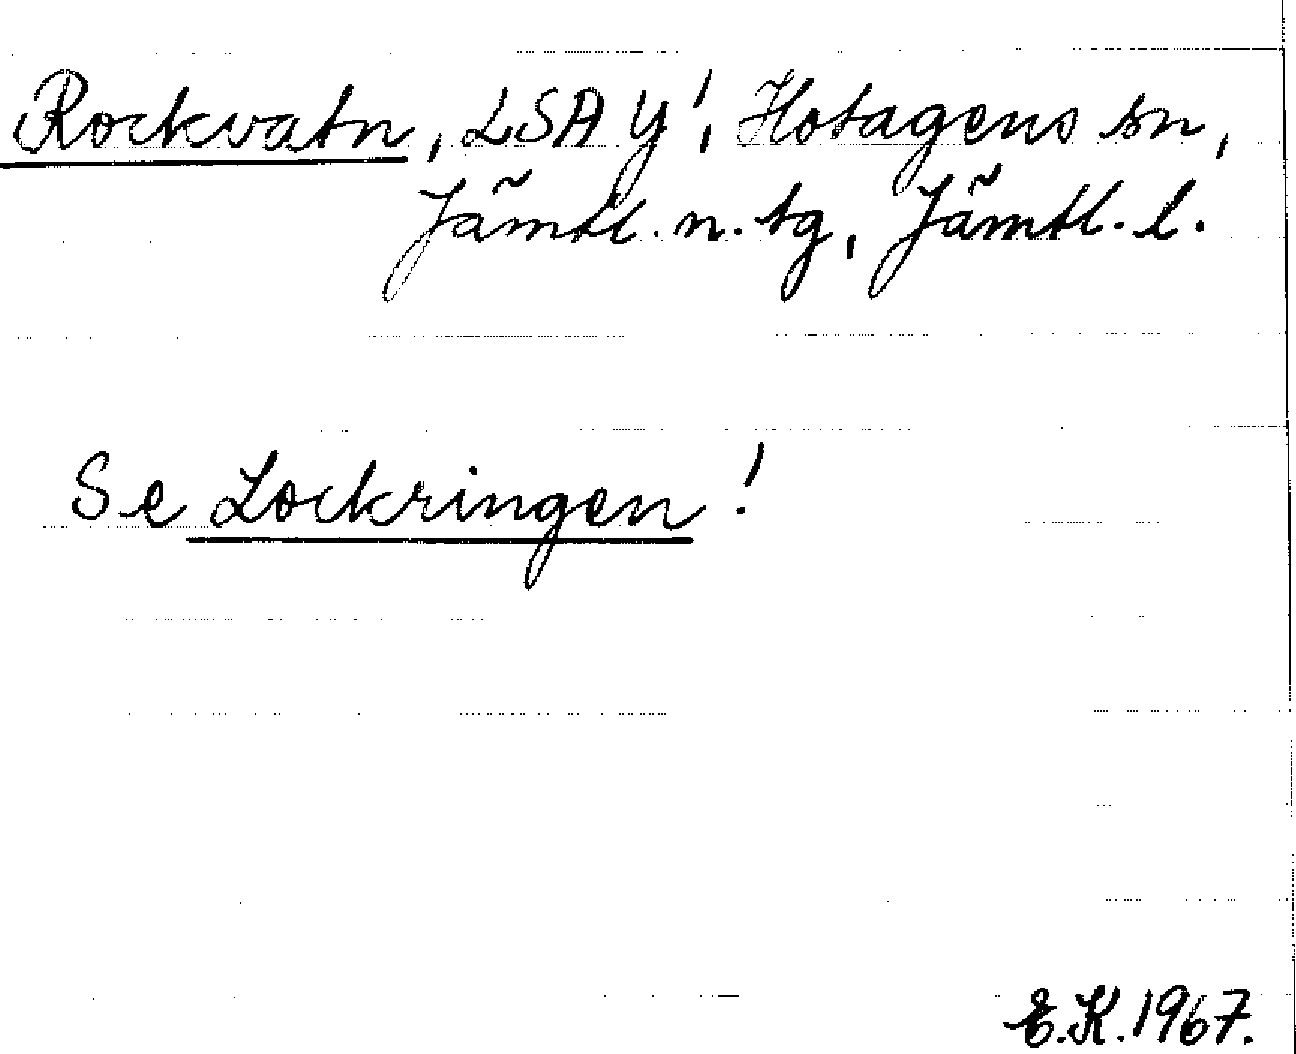 Rockvatn, LSA Y', Hotagens sn,
Jämtl. n. tg, Jämtl. l.
Se Lockringen!
E.K. 1967.